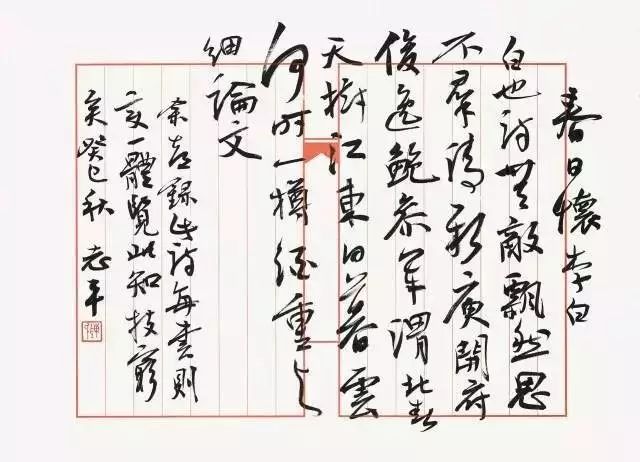 春日懷李白
白也詩無敵飄然思
不羣清新庾開府
俊逸鮑參軍渭北春
天樹江東日暮雲
何時一樽酒重与
細論文
余喜錄此詩每書則
變一體覽此知技窮
矣癸巳秋志平